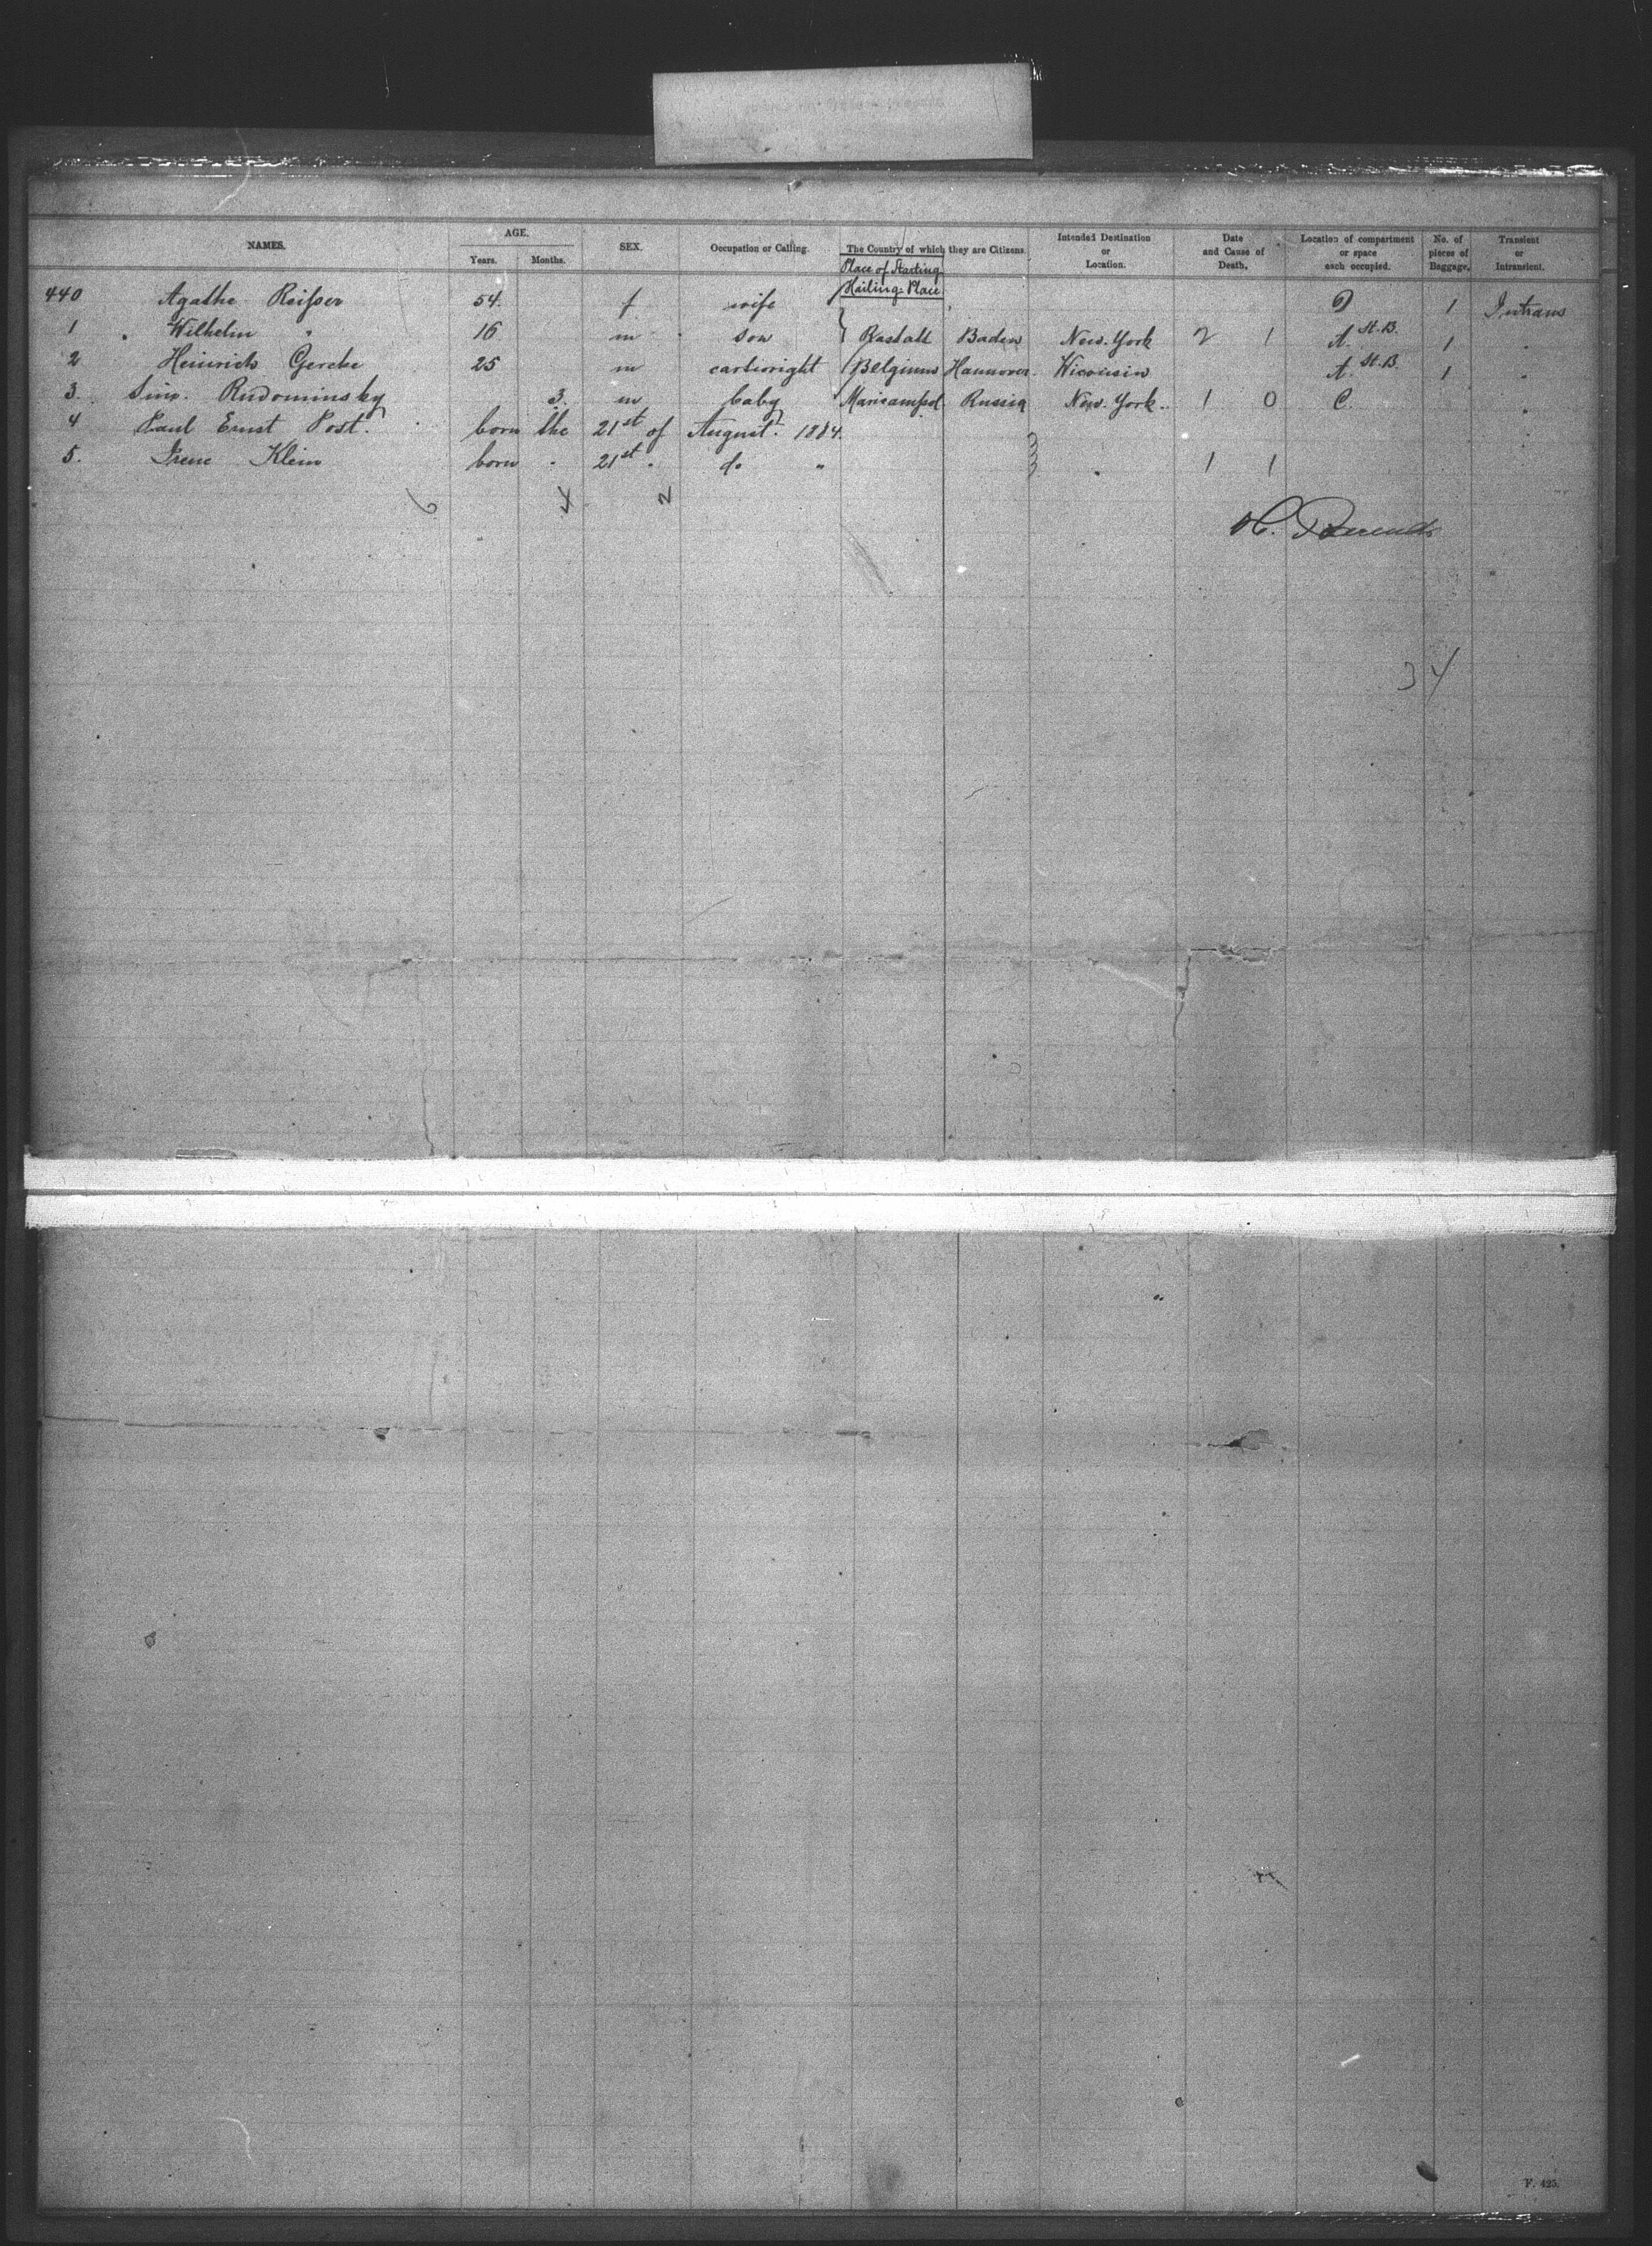 NAMES. AGE. SEX. Occupation or Calling. The Country of which they are Citizens. Intended Destination or Location. Date and Cause of Death. Location of compartment or space each occupied. No. of pieces of Baggage. Transient or Intransient.
Years. Months. Place of Starting Hailing-Place
440 Agathe Reifser 54. f wife D 1 Intrans
1 " Wilhelm " 16 m son Rastatt Baden New-York 2 1 A. St.B. 1 "
2 Heinrich Gercke 25 m cartwright Belgium Hannover. Wiconsin A. St.B. 1 "
3. Rudominsky 3. m baby Mariampol Russia New-York. 1 0 C. "
4 Paul Ernst Post. born the 21st of August. 1884.
5. Irene Klein born " 21st " do " " 1 1
6 4 2
H.
34
F. 425.